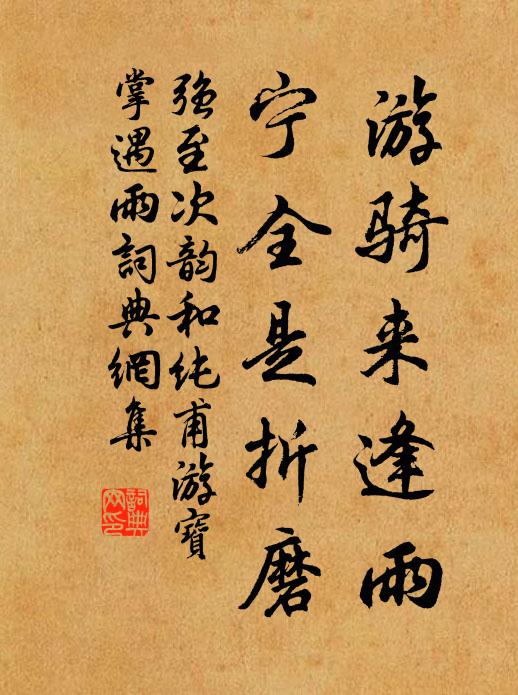 游骑来逢雨
宁全是折磨
强至次韵和纯甫游寶
掌遇雨詞典網集
詞典
网印